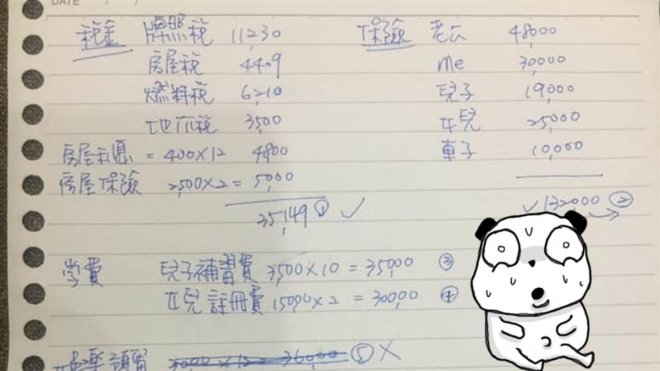 DATE / /
稅金 牌照稅 11,230
房屋稅 4409
燃料稅 6,210
地价稅 3,500
房屋利息 = 400×12 4800
房屋保險 2,500×2 = 5,000
35,149 ① ✓
保險 老公 48,000
me 30,000
兒子 19,000
女兒 25,000
車子 10,000
✓ 132,000 ②
学費 兒子補習費 3,500×10 = 35,000 ③
女兒註冊費 15,000×2 = 30,000 ④
3000×12 36,000 ⑤ ×